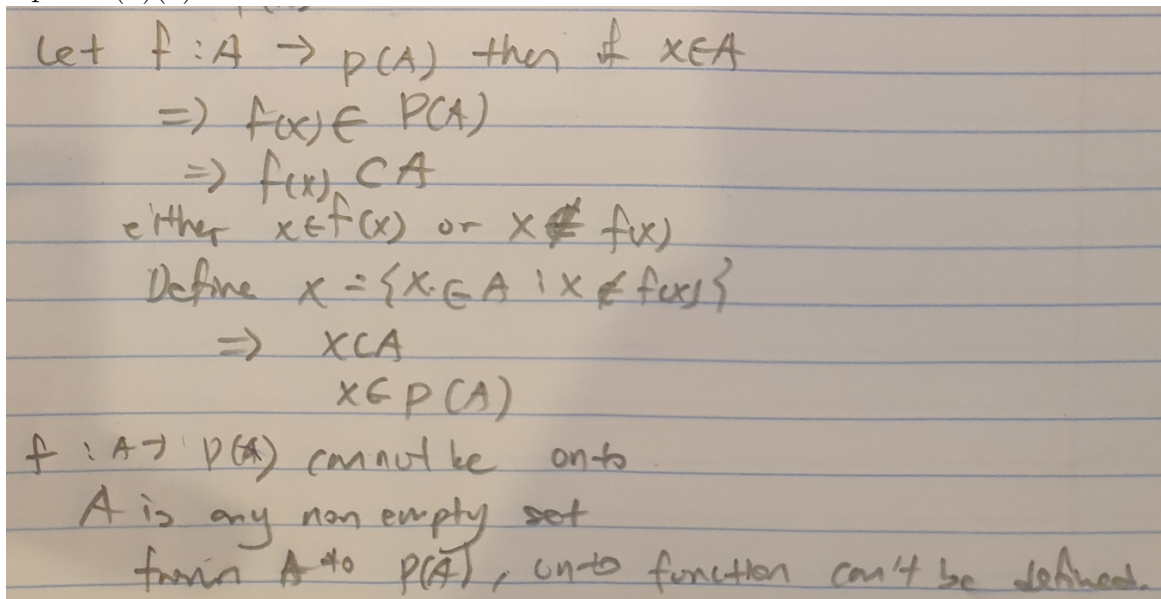 Let f : A → p(A) then if x∈A
⇒ f(x) ∈ P(A)
⇒ f(x) ⊂ A
either x∈f(x) or x∉ f(x)
Define x = {x ∈ A : x ∉ f(x)}
⇒ x⊂A
x∈ p(A)
f : A → p(A) cannot be onto
A is any non empty set
A to P(A), onto function can't be defined.